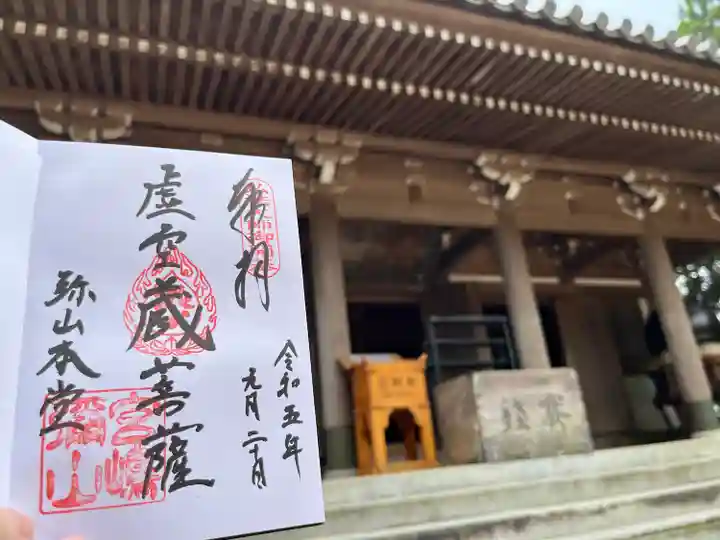 奉拝
令和五年
月二十日
虚空蔵菩薩
弥山本堂
宮嶋
彌山
賽錢